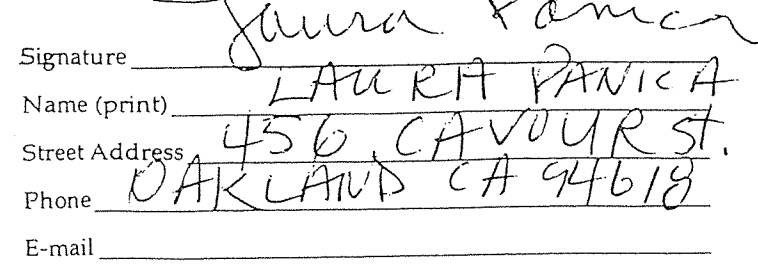 Signature Laura Panica
Name (print) LAURA PANICA
Street Address 456 CAVOUR St.
Phone OAKLAND CA 94618
E-mail